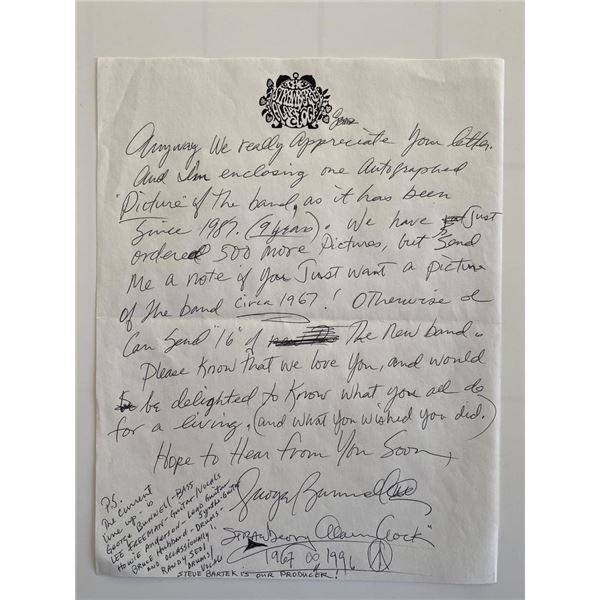 THE
STRAWBERRY
ALARM
CLOCK
Anyway We really Appreciate Your letter.
And I'm enclosing one Autographed
"Picture" of the band, as it has been
Since 1987. (9 years). We have Just
ordered 500 more Pictures, but Send
Me a note if You Just want a picture
of the band circa 1967! Otherwise I
Can Send "16" of The new band.
Please Know that we love You, and would
be delighted to Know what you all do
for a living, (and what You wished You did.)
Hope to Hear from You Soon,
George Bunnell
"STRAWberry Alarm Clock"
1967 ∞ 1996
P.S.
The current
line up is
GEORGE BUNNELL - BASS
LEE FREEMAN - Guitar/Vocals
Howie Anderson - Lead Guitar
Bruce Hubbard - Synthe-Guitar
and occassionally
RANDY SEOL
DRUMS/
VOCALS
STEVE BARTEK is our PRODUCER!